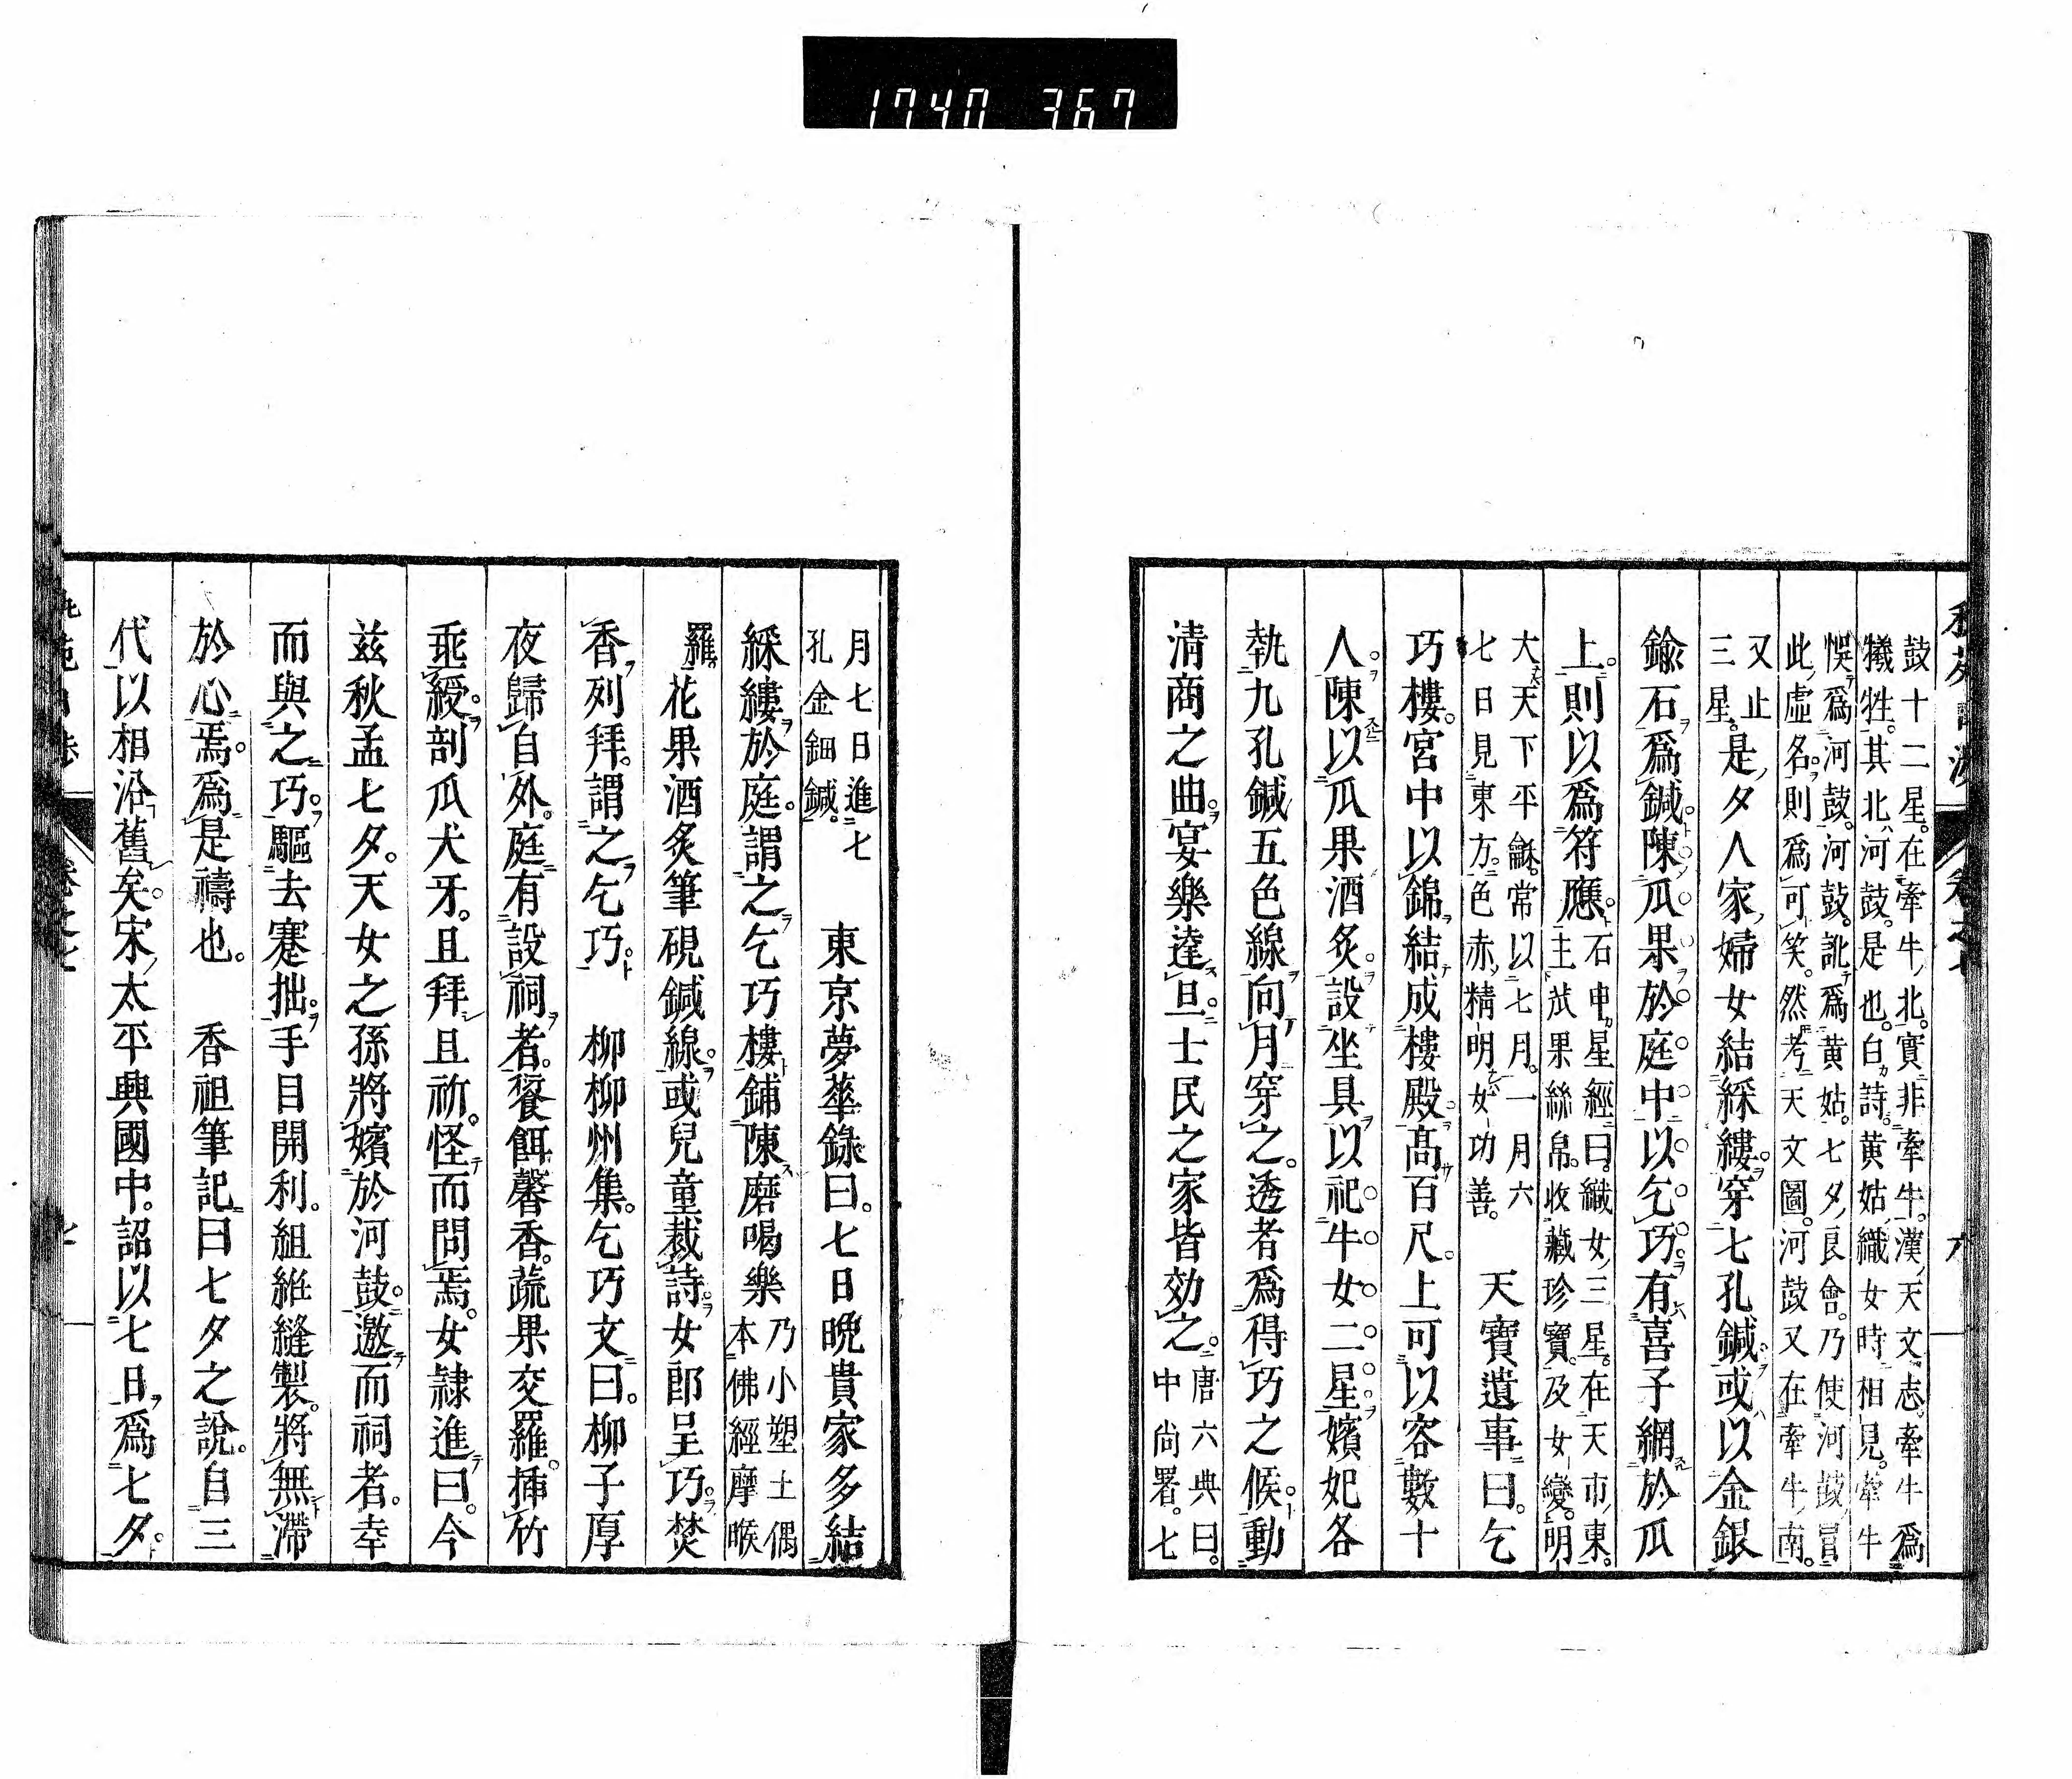 1740 367
鼓十二星。在牽牛北。實非牽牛。漢天文志。牽牛爲
犧牲。其北河鼓。是也。白詩。黄姑織女時相見。牽牛
悞爲河鼓。河鼓。訛爲黄姑。七夕良會。乃使河鼓冒
此虛名。則爲可笑。然考天文圖。河鼓又在牽牛南。
又止
三星。是夕人家婦女結綵縷。穿七孔鍼。或以金銀
鍮石爲鍼。陳瓜果於庭中以乞巧。有喜子網於瓜
上。則以爲符應。石申星經曰。織女三星。在天市東。
主苽果絲帛。收藏珍寶。及女變。明
大天下平龢。常以七月。一月六
七日見東方。色赤精明女功善。 天寶遺事曰。乞
巧樓。宮中以錦結成樓殿。髙百尺。上可以容數十
人。陳以瓜果酒炙。設坐具。以祀牛女二星。嬪妃各
執九孔鍼五色線。向月穿之。透者爲得巧之候。動
淸商之曲。宴樂達旦。士民之家皆効之。唐六典曰。
中尙署。七
月七日進七
孔金鈿鍼。 東京夢華錄曰。七日晩貴家多結
綵縷於庭。謂之乞巧樓。鋪陳磨喝樂乃小塑土偶
本佛經摩睺
羅。花果酒炙筆硯鍼線。或兒童裁詩。女郎呈巧。焚
香列拜。謂之乞巧。 柳柳州集。乞巧文曰。柳子厚
夜歸自外。庭有設祠者。餐餌馨香。蔬果交羅。揷竹
乖綬。剖瓜犬牙。且拜且祈。怪而問焉。女隷進曰。今
茲秋孟七夕。天女之孫將嬪於河鼓。邀而祠者。幸
而與之巧。驅去蹇拙。手目開利。組紝縫製。將無滯
於心焉。爲是禱也。 香祖筆記曰七夕之說。自三
代以相沿舊矣。宋太平興國中。詔以七日。爲七夕。